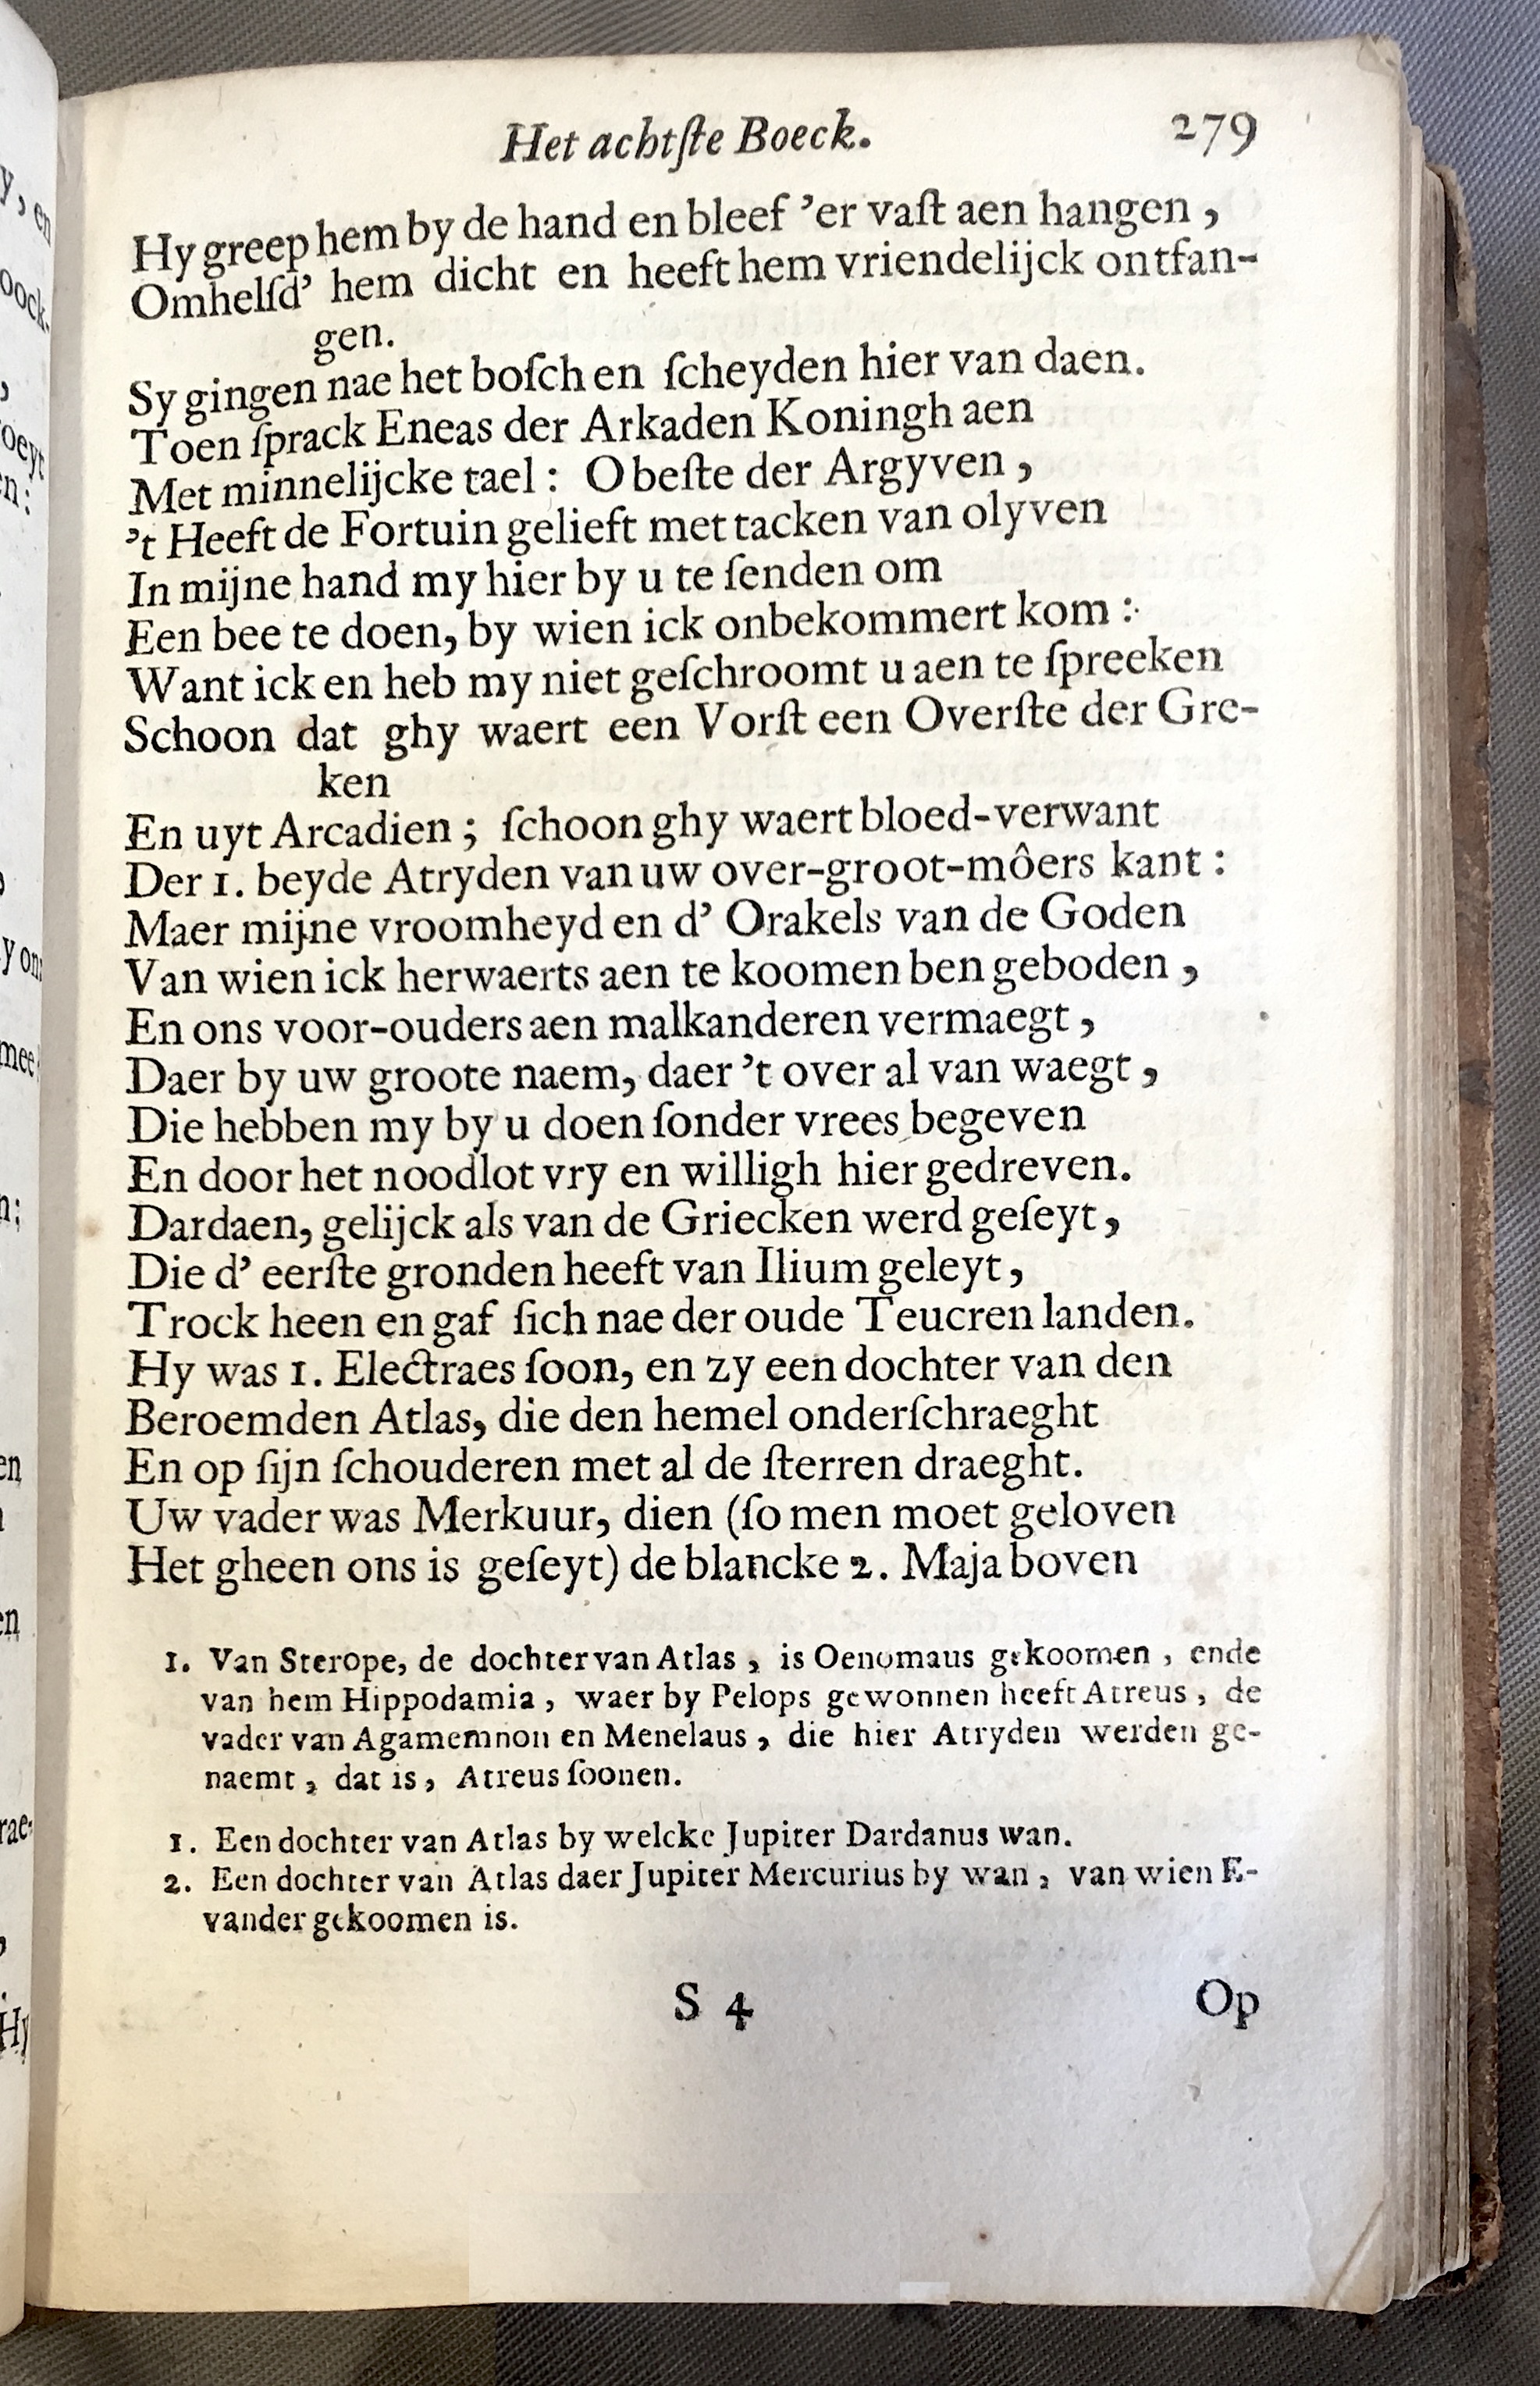 Het achtſte Boeck. 279
Hy greep hem by de hand en bleef ’er vaſt aen hangen ,
Omhelſd’ hem dicht en heeft hem vriendelijck ontfan-
gen.
Sy gingen nae het boſch en ſcheyden hier van daen.
Toen ſprack Eneas der Arkaden Koningh aen
Met minnelijcke tael : O beſte der Argyven ,
’t Heeft de Fortuin gelieft met tacken van olyven
In mijne hand my hier by u te ſenden om
Een bee te doen, by wien ick onbekommert kom :
Want ick en heb my niet geſchroomt u aen te ſpreeken
Schoon dat ghy waert een Vorſt een Overſte der Gre-
ken
En uyt Arcadien ; ſchoon ghy waert bloed-verwant
Der 1. beyde Atryden van uw over-groot-môers kant :
Maer mijne vroomheyd en d’ Orakels van de Goden
Van wien ick herwaerts aen te koomen ben geboden ,
En ons voor-ouders aen malkanderen vermaegt ,
Daer by uw groote naem, daer ’t over al van waegt ,
Die hebben my by u doen ſonder vrees begeven
En door het noodlot vry en willigh hier gedreven.
Dardaen, gelijck als van de Griecken werd geſeyt ,
Die d’ eerſte gronden heeft van Ilium geleyt ,
Trock heen en gaf ſich nae der oude Teucren landen.
Hy was 1. Electraes ſoon, en zy een dochter van den
Beroemden Atlas, die den hemel onderſchraeght
En op ſijn ſchouderen met al de ſterren draeght.
Uw vader was Merkuur, dien (ſo men moet geloven
Het gheen ons is geſeyt) de blancke 2. Maja boven
1. Van Sterope, de dochter van Atlas , is Oenomaus gekoomen , ende
van hem Hippodamia , waer by Pelops gewonnen heeft Atreus , de
vader van Agamemnon en Menelaus , die hier Atryden werden ge-
naemt , dat is , Atreus ſoonen.
1. Een dochter van Atlas by welcke Jupiter Dardanus wan.
2. Een dochter van Atlas daer Jupiter Mercurius by wan , van wien E-
vander gekoomen is.
S 4 Op